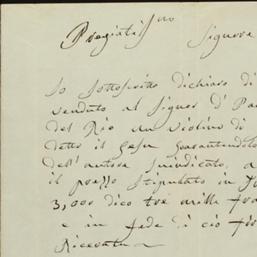 Pregiatis.mo Signore
Io sottoscritto dichiaro di
venduto al Signor D. Pa
del Rio un violino di
detto il Gesu guarantendol
dell'autore suindicato, a
il prezzo stipulato in
3,000 dico tre mille fra
e in fede di ciò fir
Ricevuta